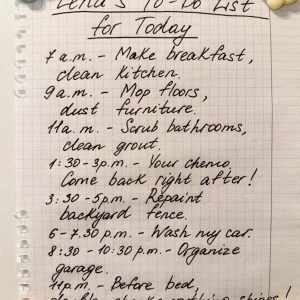 Lena's To-Do List
for Today
7 a.m. - Make breakfast,
clean kitchen.
9 a.m. - Mop floors,
dust furniture.
11 a.m. - Scrub bathrooms,
clean grout.
1:30-3p.m. - Your chemo.
Come back right after!
3:30-5p.m. - Repaint
backyard fence.
6-7.30 p.m. - Wash my car.
8:30 - 10:30 p.m. - Organize
garage.
11p.m. - Before bed,